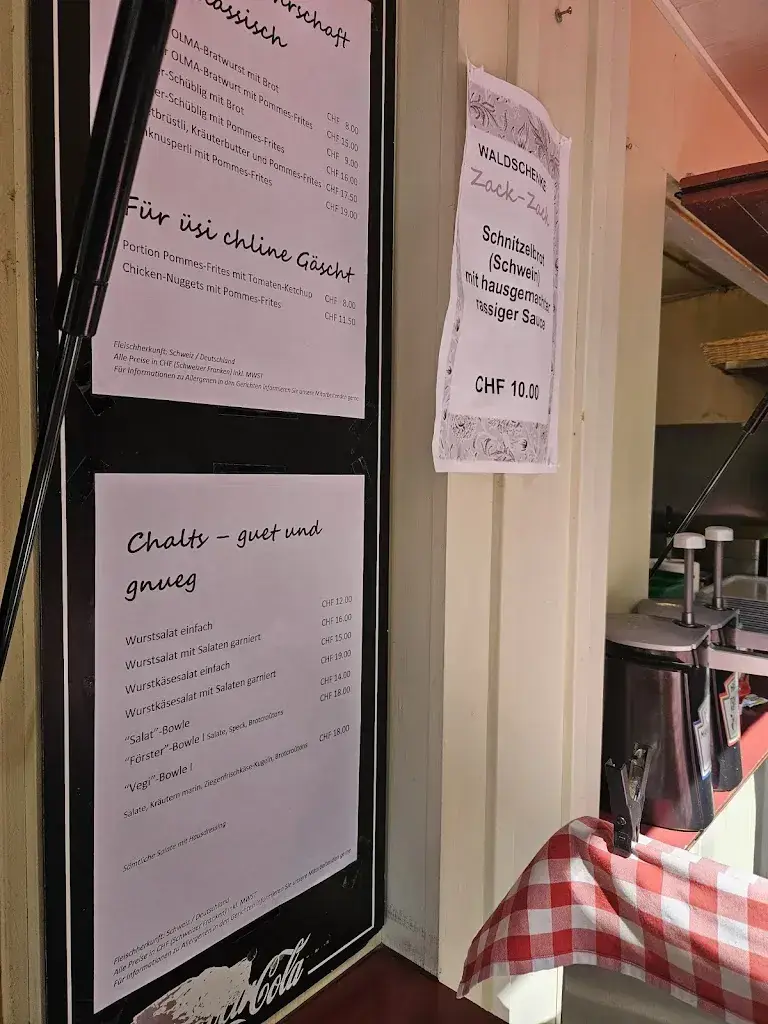 OLMA-Bratwurst mit Brot CHF 8.00
OLMA-Bratwurt mit Pommes-Frites CHF 15.00
Schüblig mit Brot CHF 9.00
Schüblig mit Pommes-Frites CHF 16.00
Kräuterbutter und Pommes-Frites CHF 17.50
mit Pommes-Frites CHF 19.00
Für üsi chline Gäscht
Portion Pommes-Frites mit Tomaten-Ketchup CHF 8.00
Chicken-Nuggets mit Pommes-Frites CHF 11.50
Fleischherkunft: Schweiz / Deutschland
Alle Preise in CHF (Schweizer Franken) inkl. MWST
Für Informationen zu Allergenen in den Gerichten informieren Sie unsere Mitarbeitenden gerne
WALDSCHENKE
Zack-Zack
Schnitzelbrot
(Schwein)
mit hausgemachter
rassiger Sauce
CHF 10.00
Chalts – guet und
gnueg
Wurstsalat einfach CHF 12.00
Wurstsalat mit Salaten garniert CHF 16.00
Wurstkäsesalat einfach CHF 15.00
Wurstkäsesalat mit Salaten garniert CHF 19.00
"Salat"-Bowle CHF 14.00
"Förster"-Bowle | Salate, Speck, Brotcroûtons CHF 18.00
"Vegi"-Bowle | CHF 18.00
Salate, Kräutern marin. Ziegenfrischkäse-Kugeln, Brotcroûtons
Sämtliche Salate mit Hausdressing
Fleischherkunft: Schweiz / Deutschland
Alle Preise in CHF (Schweizer Franken) inkl. MWST
Für Informationen zu Allergenen in den Gerichten informieren Sie unsere Mitarbeitenden gerne